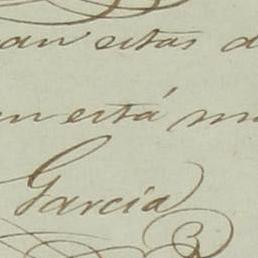 an estas d
n está m
García